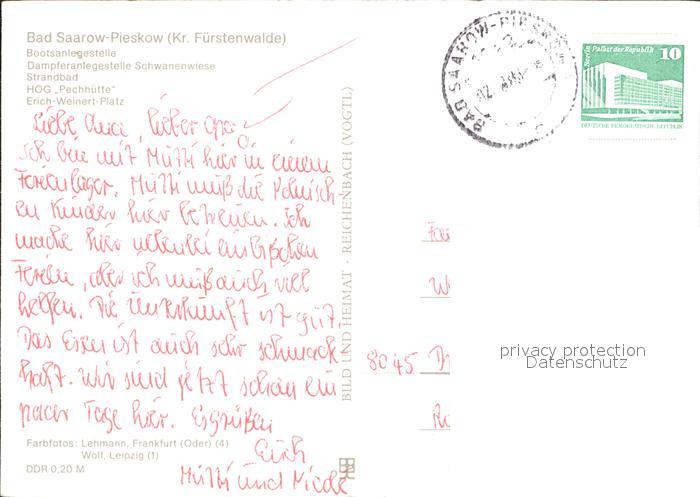 Bad Saarow-Pieskow (Kr. Fürstenwalde)
Bootsanlegestelle
Dampferanlegestelle Schwanenwiese
Strandbad
HOG „Pechhütte"
Erich-Weinert-Platz
Liebe Omi, lieber Opi
Ich bin mit Mutti hier in einem
Ferienlager. Mutti muß die Polnisch-
en Kinder hier betreuen. Ich
mache hier nebenbei ein bißchen
Ferien, aber ich muß auch viel
helfen. Die Unterkunft ist gut.
Das Essen ist auch sehr schmack-
haft. Wir sind jetzt schon ein
paar Tage hier. Es grüßen
Euch
Mutti und
Farbfotos: Lehmann, Frankfurt (Oder) (4)
Wolf, Leipzig (1)
DDR 0,20 M
BILD UND HEIMAT · REICHENBACH (VOGTL)
BAD SAAROW-PIESKOW
Berlin Palast der Republik 10
DEUTSCHE DEMOKRATISCHE REPUBLIK
8045
privacy protection
Datenschutz